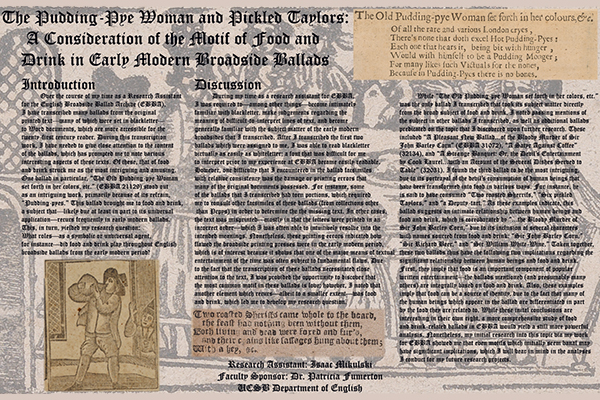 The Pudding-Pye Woman and Pickled Taylors:
A Consideration of the Motif of Food and
Drink in Early Modern Broadside Ballads
The Old Pudding-pye Woman set forth in her colours, &c.
Of all the rare and various London cryes,
There's none that doth excel Hot Pudding-Pyes:
Each one that hears it, being bit with hunger,
Would wish himself to be a Pudding Monger;
For many likes such Victuals for the nones,
Because in Pudding-Pyes there is no bones.
Introduction
Over the course of my time as a Research Assistant
for the English Broadside Ballad Archive (EBBA),
I have transcribed many ballads from the original
printed text—many of which were set in blackletter—
to Word documents, which are more accessible for the
twenty-first century reader. During this transcription
work, I have needed to give close attention to the content
of the ballads, which has prompted me to note various
interesting aspects of these texts. Of these, that of food
and drink struck me as the most intriguing and amusing.
One ballad in particular, "The Old Pudding-pye Woman
set forth in her colors, etc." (EBBA 21220) stood out
as an intriguing work, primarily because of its referent
"Pudding-pyes." This ballad brought me to food and drink,
a subject that—likely due at least in part to its universal
application—recurs frequently in early modern ballads.
This, in turn, evolved my research question:
What roles—as a symbolic or universal agent,
for instance—did food and drink play throughout English
broadside ballads from the early modern period?
Discussion
During my time as a research assistant for EBBA,
I was required to—among other things—become intimately
familiar with blackletter, make judgments regarding the
meaning of difficult-to-interpret lines of text, and become
generally familiar with the subject matter of the early modern
broadsides that I transcribed. After I transcribed the first ten
ballads which were assigned to me, I was able to read blackletter
virtually as easily as whiteletter; a font that was difficult for me
to interpret prior to my experience at EBBA became easily-readable.
However, one difficulty that I encountered in the ballad facsimiles
with relative consistency was the damage or printing errors that
many of the original documents possessed. For instance, some
of the ballads that I transcribed had torn portions, which required
me to consult other facsimiles of these ballads (from collections other
than Pepys) in order to determine the missing text. In other cases,
the text was misprinted—usually in that the letters were printed in an
incorrect order—which I was often able to intuitively resolve into its
intended meanings. Nonetheless, these printing errors indicate how
flawed the broadside printing presses were in the early modern period,
which is of interest because it shows that one of the major means of textual
entertainment of the time was often subject to fundamental flaws. Due
to the fact that the transcription of these ballads necessitated close
attention to the text, I was provided the opportunity to discover that
the most common motif in these ballads is love; however, I noted that
another element which recurs—albeit to a smaller extent—was food
and drink, which led me to develop my research question.
Two roasted Sheriffs came whole to the board,
the feast had nothing been without them,
Both living and dead were fored and fur'd,
and their c ains like sassages hung about them;
With a hey, &c.
While "The Old Pudding-pye Woman set forth in her colors, etc."
was the only ballad I transcribed that took its subject matter directly
from the broad subject of food and drink, I noted passing mentions of
the subject in other ballads I transcribed, as well as additional ballads
predicated on the topic that I discovered upon further research. These
included "A Pleasant New Ballad... of the Bloody Murder of Sir
John Barley Corn" (EBBA 31072), "A Satyr Against Coffee"
(32134), and "A Strange Banquet; Or, the Devil's Entertainment
by Cook Laurel, with an Account of the Several Dishes Served to
Table" (32011). I found the third ballad to be the most intriguing
due to its portrayal of the Devil's consumption of human beings that
have been transformed into food in various ways. For instance, he
is said to have consumed "Two roasted Sheriffs," "Six pickled
Taylors," and "a Deputy-tart." As these examples indicate, this
ballad suggests an intimate relationship between human beings and
food and drink, which is corroborated by "... the Bloody Murder of
Sir John Barley Corn," due to its inclusion of several characters
with names derived from food and drink: "Sir John Barley Corn,"
"Sir Richard Beer," and "Sir William White Wine." Taken together,
these two ballads alone have the following two implications regarding the
significant relationship between human beings and food and drink.
First, they imply that food is an important component of popular
written entertainment—the ballads mentioned (and presumably many
others) are integrally based on food and drink. Also, these examples
imply that food can be a source of identity, due to the fact that many of
the human beings which appear in the ballad are differentiated in part
by the food they are related to. While these initial conclusions are
interesting in their own right, a more comprehensive study of food
and drink-related ballads in EBBA would yield a still more powerful
analysis. Nonetheless, my initial research into this topic via my work
for EBBA showed me that even motifs which initially seem banal may
have significant implications, which I will bear in mind in the analyses
I conduct for my future research projects.
Research Assistant: Isaac Mikulski
Faculty Sponsor: Dr. Patricia Fumerton
UCSB Department of English